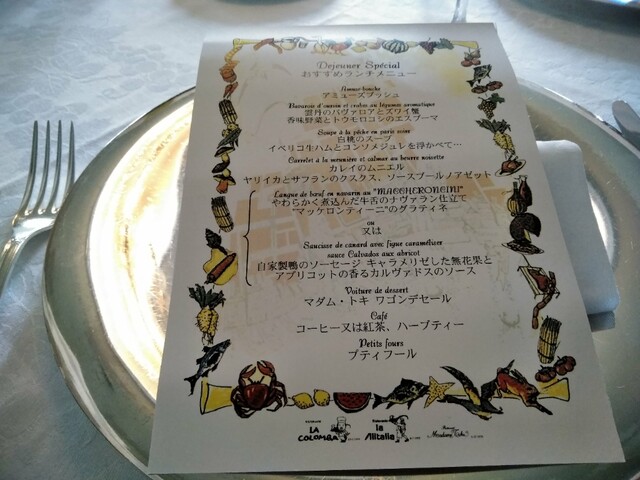 Dejeuner Spécial
おすすめランチメニュー
Amuse-bouche
アミューズブッシュ
Bavarois d'oursin et crabes au légumes aromatique
雲丹のバヴァロアとズワイ蟹
香味野菜とトウモロコシのエスプーマ
Soupe à la pêche en paris soir
白桃のスープ
イベリコ生ハムとコンソメジュレを浮かべて…
Carrelet à la meunière et calmar au beurre noisette
カレイのムニエル
ヤリイカとサフランのクスクス、ソースブールノアゼット
Langue de bœuf en navarin au "MACCHERONCINI"
やわらかく煮込んだ牛舌のナヴァラン仕立て
"マッケロンティーニ"のグラティネ
ou
又は
Saucisse de canard avec figue caraméliser
sauce Calvados aux abricot
自家製鴨のソーセージ キャラメリゼした無花果と
アプリコットの香るカルヴァドスのソース
Voiture de dessert
マダム・トキ ワゴンデセール
Café
コーヒー又は紅茶、ハーブティー
Petits fours
プティフール
LA COLOMBA
la Alitalia
Madame Toki